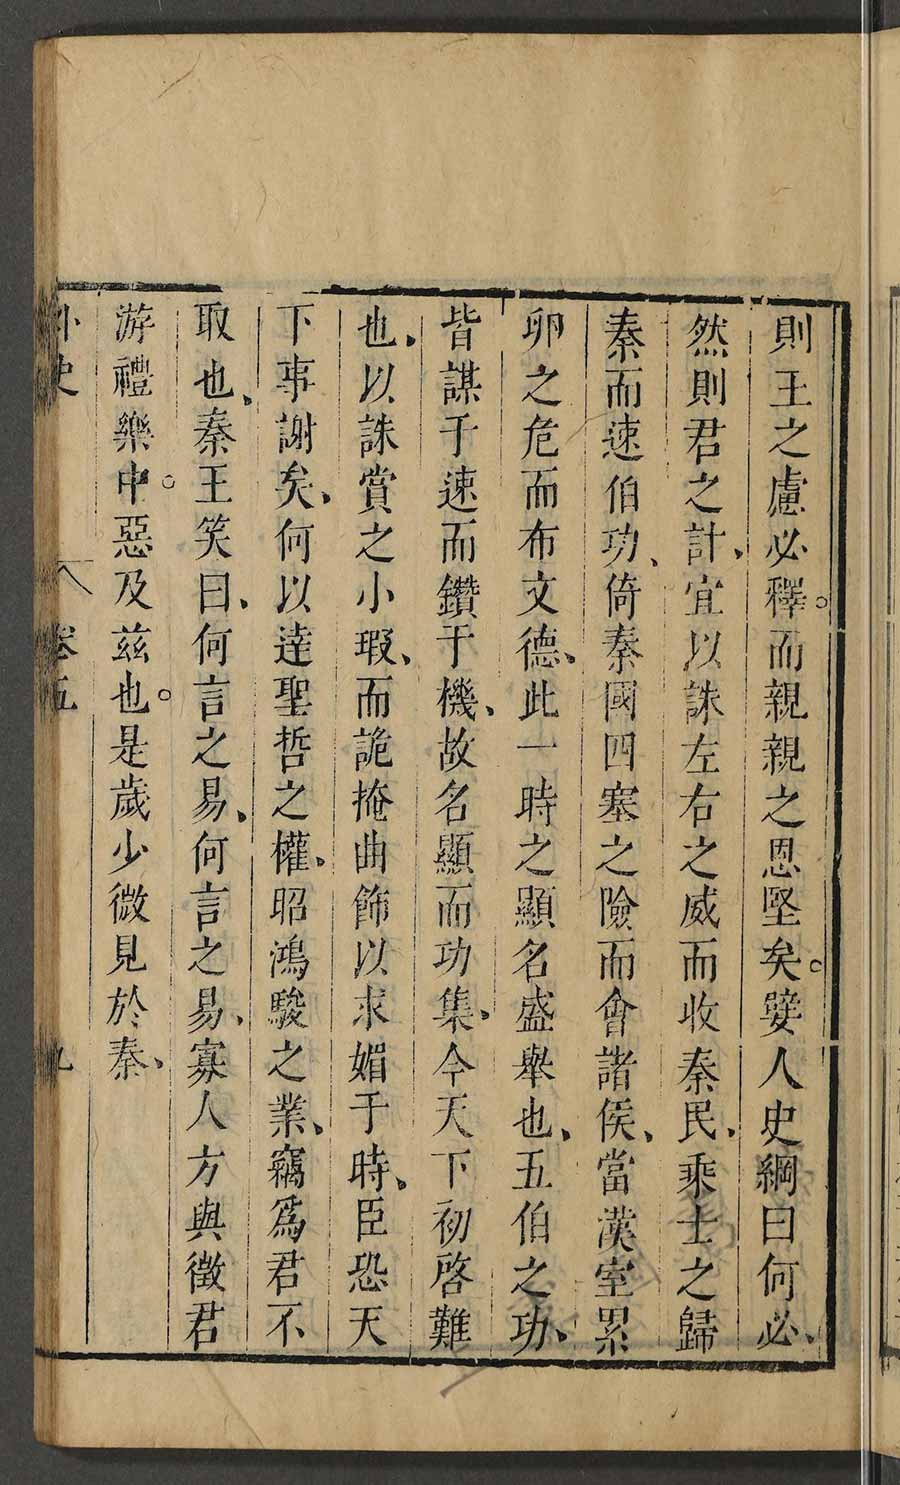 則王之慮必釋。而親親之恩堅矣。嬖人史綱曰何必、
然則君之計、宜以誅左右之威而收秦民、乘士之歸
秦而速伯功、倚秦國四塞之險而會諸侯、當漢室累
卵之危而布文德、此一時之顯名盛舉也、五伯之功、
皆謀于速而鑽于機、故名顯而功集、今天下初啓難
也、以誅賞之小瑕、而詭掩曲飾以求媚于時、臣恐天
下事謝矣、何以達聖哲之權、昭鴻駿之業、竊爲君不
取也、秦王笑曰、何言之易、何言之易、寡人方與徵君
游禮樂中。惡及茲也。是歲少微見於秦、
外史 卷五 九